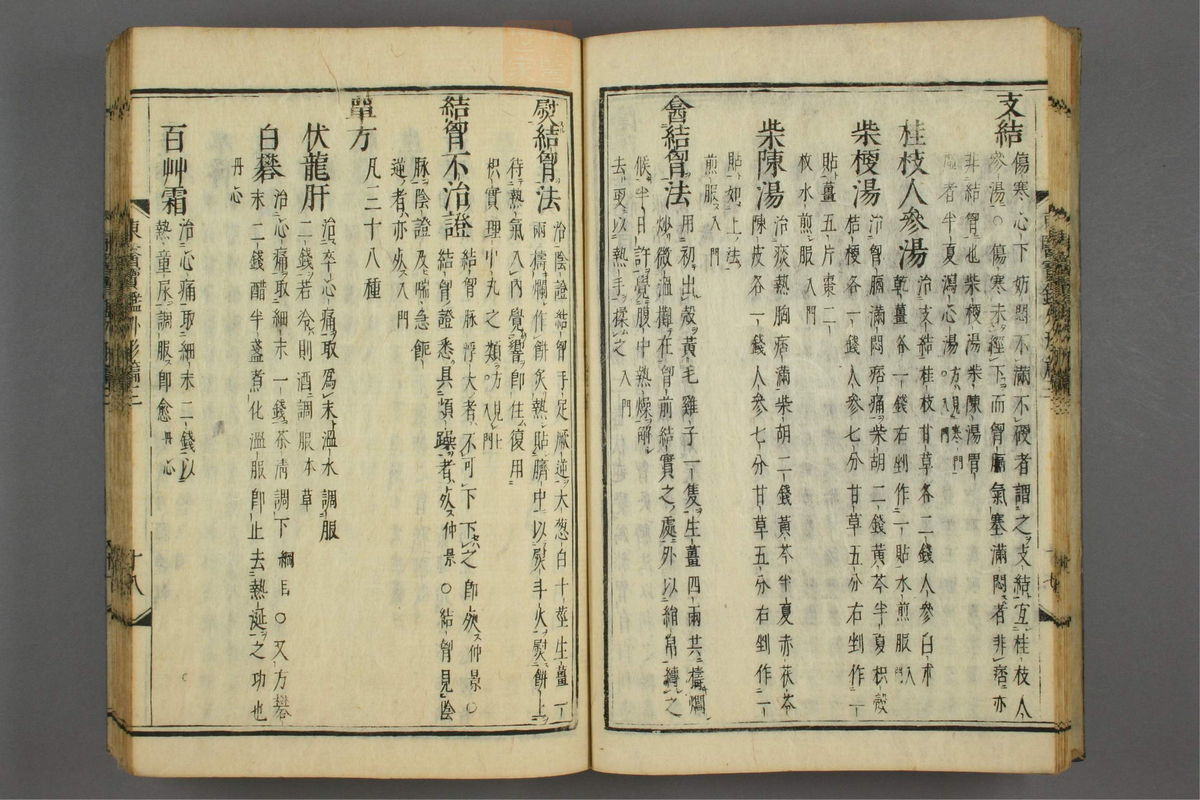 支結
傷寒心下妨悶不滿不硬者謂之支結宜桂枝人
參湯○傷寒未經下而胷膈氣塞滿悶者非痞亦
非結胷也柴梗湯柴陳湯胃
者半夏瀉心湯方見寒門○入門
桂枝人參湯
治支結桂枝甘草各二錢人參白朮
乾薑各一錢右剉作一貼水煎服入門
柴梗湯
治胷膈滿悶痞痛柴胡二錢黃芩半夏枳殼
桔梗各一錢人參七分甘草五分右剉作一
貼薑五片棗二
枚水煎服入門
柴陳湯
治痰熱胸痞滿柴胡二錢黃芩半夏赤茯苓
陳皮各一錢人參七分甘草五分右剉作一
貼如上法
煎服入門
䁥結胷法
用初出殼黃毛雞子一隻生薑四兩共擣爛
炒微溫攤在胷前結實之處外以絹帛纏之
候半日許覺腹中熱燥解
去更以熱手揉之入門
熨結胷法
治陰證結胷手足厥逆大葱白十莖生薑一
兩擣爛作餅炙熱貼臍中以熨斗火熨餅上
待熱氣入內覺響卽住復用
枳實理中丸之類方見上○入門
結胷不治證
結胷脉浮大者不可下下之卽死仲景○
結胷證悉具煩躁者死仲景○結胷見陰
脉陰證及喘急
逆者亦死入門
單方
凡三十八種
伏龍肝
治卒心痛取爲末溫水調服
二錢若冷則酒調服本草
白礬
治心痛取細末一錢茶淸調下綱目○又方礬
末二錢醋半盞煮化溫服卽止去熱涎之功也
丹心
百艸霜
治心痛取細末二錢以
熱童尿調服卽愈丹心
東醫寶鑑外形篇三
十八